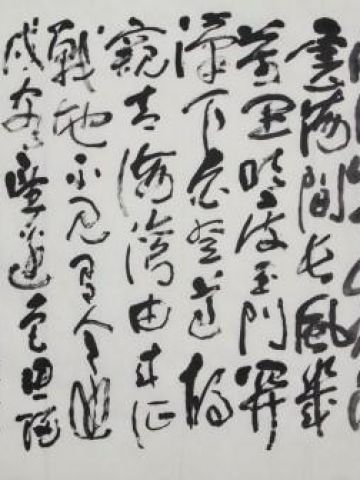 雲海間長風幾
萬里吹度玉門關
漢下白登道胡
窺青海灣由來征
戰地不見有人還
戍客望邊色思歸